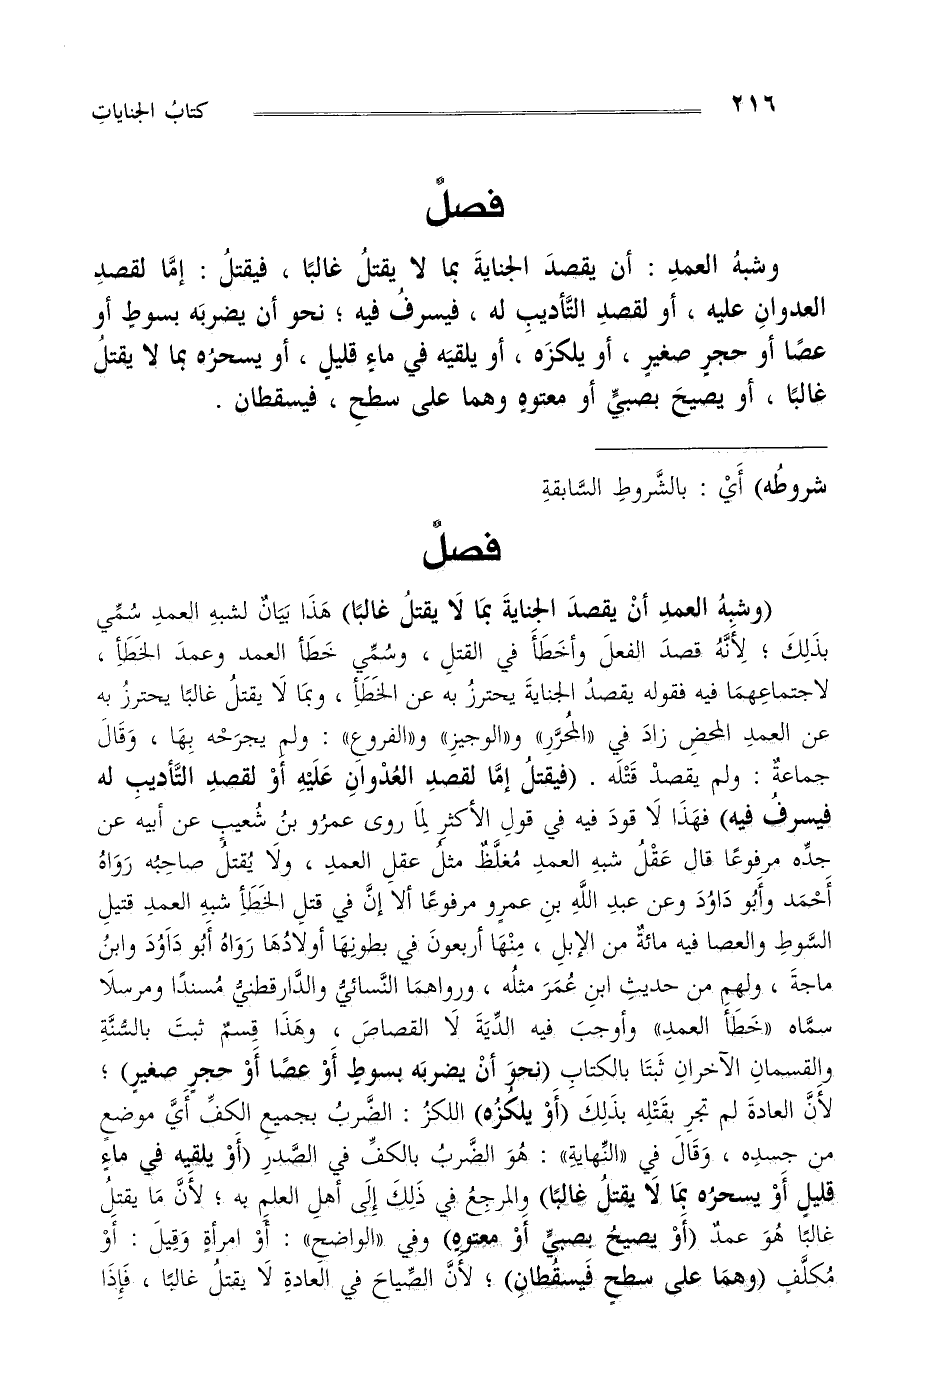 ٢١٦ كتابُ الجناياتِ
فصلٌ
وشبهُ العمدِ : أن يقصدَ الجنايةَ بما لا يقتلُ غالبًا ، فيقتلُ : إمَّا لقصدِ
العدوانِ عليه ، أو لقصدِ التَّأديبِ له ، فيسرفُ فيه ؛ نحو أن يضربَه بسوطٍ أو
عصًا أو حجرٍ صغيرٍ ، أو يلكزَه ، أو يلقيَه في ماءٍ قليلٍ ، أو يسحرُه بما لا يقتلُ
غالبًا ، أو يصيحَ بصبيٍّ أو معتوهٍ وهما على سطحٍ ، فيسقطان .
شروطُه) أَيْ : بالشَّروطِ السَّابقةِ
فصلٌ
(وشبهُ العمدِ أنْ يقصدَ الجنايةَ بمَا لَا يقتلُ غالبًا) هَذَا بيَانٌ لشبهِ العمدِ سُمِّي
بذَلِكَ ؛ لِأَنَّهُ قصدَ الفعلَ وأخطَأَ في القتلِ ، وسُمِّي خَطَأ العمد وعمدَ الخَطَأِ ،
لاجتماعِهمَا فيه فقوله يقصدُ الجنايةَ يحترزُ به عن الخَطَأِ ، وبمَا لَا يقتلُ غالبًا يحترزُ به
عن العمدِ المحضِ زادَ في «المُحَرَّرِ» و«الوجيزِ» و«الفروعِ» : ولم يجرَحْه بِهَا ، وَقَالَ
جماعةٌ : ولم يقصدْ قَتْلَه . (فيقتلُ إمَّا لقصدِ العُدْوانِ عَلَيْهِ أَوْ لقصدِ التَّأديبِ له
فيسرفُ فيه) فهَذَا لَا قودَ فيه في قولِ الأكثرِ لِمَا روى عمرُو بنُ شُعيبٍ عن أبيه عن
جدِّه مرفوعًا قال عَقْلُ شبهِ العمدِ مُغلَّظٌ مثلُ عقلِ العمدِ ، ولَا يُقتلُ صاحبُه رَوَاهُ
أَحْمَد وأَبُو دَاوُدَ وعن عبدِ اللَّهِ بنِ عمرٍو مرفوعًا ألا إنَّ في قتلِ الخَطَأِ شبهِ العمدِ قتيلِ
السَّوطِ والعصا فيه مائةٌ من الإبلِ ، مِنْهَا أربعونَ في بطونِهَا أولادُهَا رَوَاهُ أَبُو دَاوُدَ وابنُ
ماجةَ ، ولهم من حديثِ ابنِ عُمَرَ مثلُه ، ورواهمَا النَّسائيُّ والدَّارقطنيُّ مُسندًا ومرسلًا
سمَّاه «خَطَأَ العمدِ» وأوجبَ فيه الدِّيَةَ لَا القصاصَ ، وهَذَا قِسمٌ ثبتَ بالسُّنَّةِ
والقسمانِ الآخرانِ ثَبتَا بالكتابِ (نحوَ أنْ يضربَه بسوطٍ أوْ عصًا أوْ حجرٍ صغيرٍ) ؛
لأَنَّ العادةَ لم تجرِ بقَتْلِه بذَلِكَ (أوْ يلكزُه) اللكزُ : الضَّربُ بجميعِ الكفِّ أيَّ موضعٍ
من جسدِه ، وَقَالَ في «النِّهايةِ» : هُوَ الضَّربُ بالكفِّ في الصَّدرِ (أوْ يلقيه في ماءٍ
قليلٍ أوْ يسحرُه بمَا لَا يقتلُ غالبًا) والمرجعُ في ذَلِكَ إِلَى أهلِ العلمِ به ؛ لأَنَّ مَا يقتلُ
غالبًا هُوَ عمدٌ (أوْ يصيحُ بصبيٍّ أوْ معتوهٍ) وفي «الواضحِ» : أوْ امرأةٍ وَقِيلَ : أَوْ
مُكلَّفٍ (وهمَا على سطحٍ فَيسقُطانِ) ؛ لأَنَّ الصِّياحَ في العَادةِ لَا يقتلُ غالبًا ، فَإِذَا